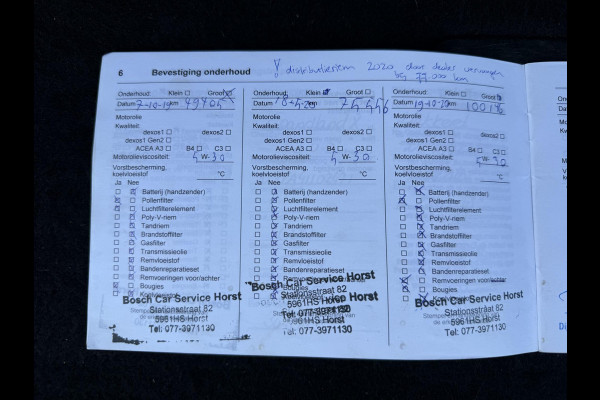 6 Bevestiging onderhoud
! distributieriem 2020 door dealer vervangen
bij 77 000 km
Onderhoud: Klein Groot
Datum 7-10-19 km
Motorolie
Kwaliteit:
dexos1 dexos2
dexos1 Gen2
ACEA A3 B4 C3
Motorolieviscositeit: 5 W- 30
Vorstbescherming,
koelvloeistof °C
Ja Nee
Batterij (handzender)
Pollenfilter
Luchtfilterelement
Poly-V-riem
Tandriem
Brandstoffilter
Gasfilter
Transmissieolie
Remvloeistof
Bandenreparatieset
Remvoeringen voor/achter
Bougies
Bosch Car Service Horst
Stationsstraat 82
5961HS Horst
Tel: 077-3971130
Onderhoud: Klein Groot
Datum km
Motorolie
Kwaliteit:
dexos1 dexos2
dexos1 Gen2
ACEA A3 B4 C3
Motorolieviscositeit: 5 W- 30
Vorstbescherming,
koelvloeistof °C
Ja Nee
Batterij (handzender)
Pollenfilter
Luchtfilterelement
Poly-V-riem
Tandriem
Brandstoffilter
Gasfilter
Transmissieolie
Remvloeistof
Bandenreparatieset
Remvoeringen voor/achter
Bougies
Bosch Car Service Horst
Stationsstraat 82
5961HS Horst
Tel: 077-3971130
5961HS Horst
Tel: 077-3971130
Onderhoud: Klein Groot
Datum 19-10-20 km
Motorolie
Kwaliteit:
dexos1 dexos2
dexos1 Gen2
ACEA A3 B4 C3
Motorolieviscositeit: 5 W- 30
Vorstbescherming,
koelvloeistof °C
Ja Nee
Batterij (handzender)
Pollenfilter
Luchtfilterelement
Poly-V-riem
Tandriem
Brandstoffilter
Gasfilter
Transmissieolie
Remvloeistof
Bandenreparatieset
Remvoeringen voor/achter
Bougies
Bosch Car Service Horst
Stationsstraat 82
5961HS Horst
Tel: 077-3971130